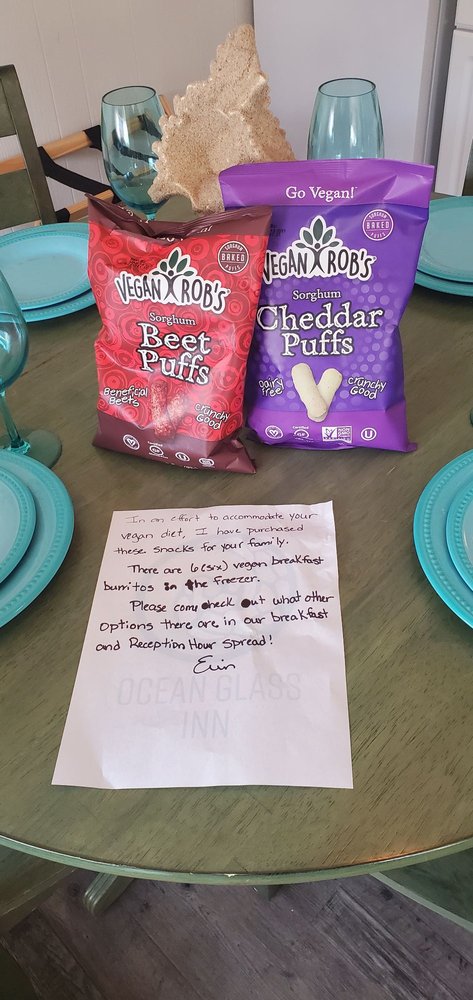 Go Vegan!
SORGHUM
BAKED
PUFFS
VEGAN ROB'S
Sorghum
Cheddar
Puffs
Dairy
free
crunchy
Good
SORGHUM
BAKED
PUFFS
VEGAN ROB'S
Sorghum
Beet
Puffs
Beneficial
Beets
crunchy
Good
In an effort to accommodate your
vegan diet, I have purchased
these snacks for your family.
There are 6 (six) vegan breakfast
burritos in the freezer.
Please come check out what other
options there are in our breakfast
and Reception Hour spread!
Erin
OCEAN GLASS
INN